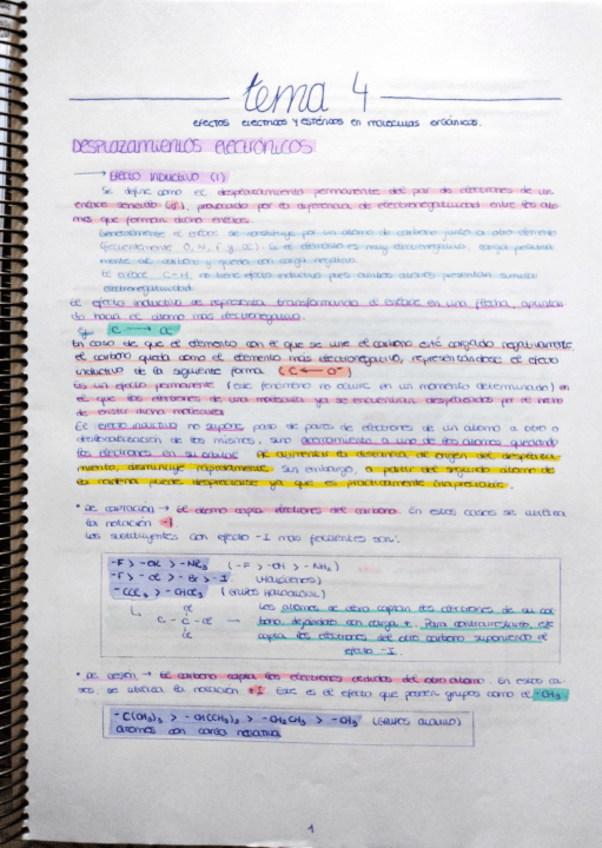 tema 4
efectos electrónicos y estéricos en moléculas orgánicas.
DESPLAZAMIENTOS ELECTRÓNICOS
→ EFECTO INDUCTIVO (I)
Se define como el desplazamiento permanente del par de electrones de un
enlace sencillo (σ), provocado por la diferencia de electronegatividad entre los áto
mos que forman dicho enlace.
Generalmente el enlace se constituye por un átomo de carbono junto a otro elemento
(frecuentemente O, N, F y Cl). Si el elemento es muy electronegativo, carga positiva
mente al carbono y queda con carga negativa.
El enlace C-H, no tiene efecto inductivo pues ambos átomos presentan similar
electronegatividad.
El efecto inductivo se representa transformando el enlace en una flecha, apuntan
do hacia el átomo más electronegativo.
C → Cl
En caso de que el elemento con el que se une el carbono esté cargado negativamente
el carbono queda como el elemento más electronegativo, representándose el efecto
inductivo de la siguiente forma (C ← O⁻)
Es un efecto permanente (este fenómeno no ocurre en un momento determinado) en
el que los electrones de una molécula ya se encuentran desplazados por el hecho
de existir dicha molécula
El efecto inductivo no supone paso de pares de electrones de un átomo a otro o
deslocalización de los mismos, sino acercamiento a uno de los átomos quedando
los electrones en su orbital. Al aumentar la distancia al origen del desplaza
miento, disminuye rápidamente. Sin embargo, a partir del segundo átomo de
la cadena puede despreciarse ya que es prácticamente inapreciable.
• De captación → El átomo capta electrones del carbono. En estos casos se utiliza
la notación -I.
Los sustituyentes con efecto -I más frecuentes son:
-F > -OR > -NR₂ (-F > -OH > -NH₂)
-F > -Cl > -Br > -I (Halógenos)
-CCl₃ > -CHCl₂ (Grupos haloalquil)
Cl
C - C - Cl →
Cl
Los átomos de cloro captan los electrones de su car
bono dejándolo con carga +. Para contrarrestarlo, este
capta los electrones del otro carbono suponiendo el
efecto -I.
• De cesión → El carbono capta los electrones cedidos del otro átomo. En estos ca
sos, se utiliza la notación +I. Este es el efecto que poseen grupos como el -CH₃
-C(CH₃)₃ > -CH(CH₃)₂ > -CH₂CH₃ > -CH₃ (Grupos alquilo)
átomos con carga negativa
1